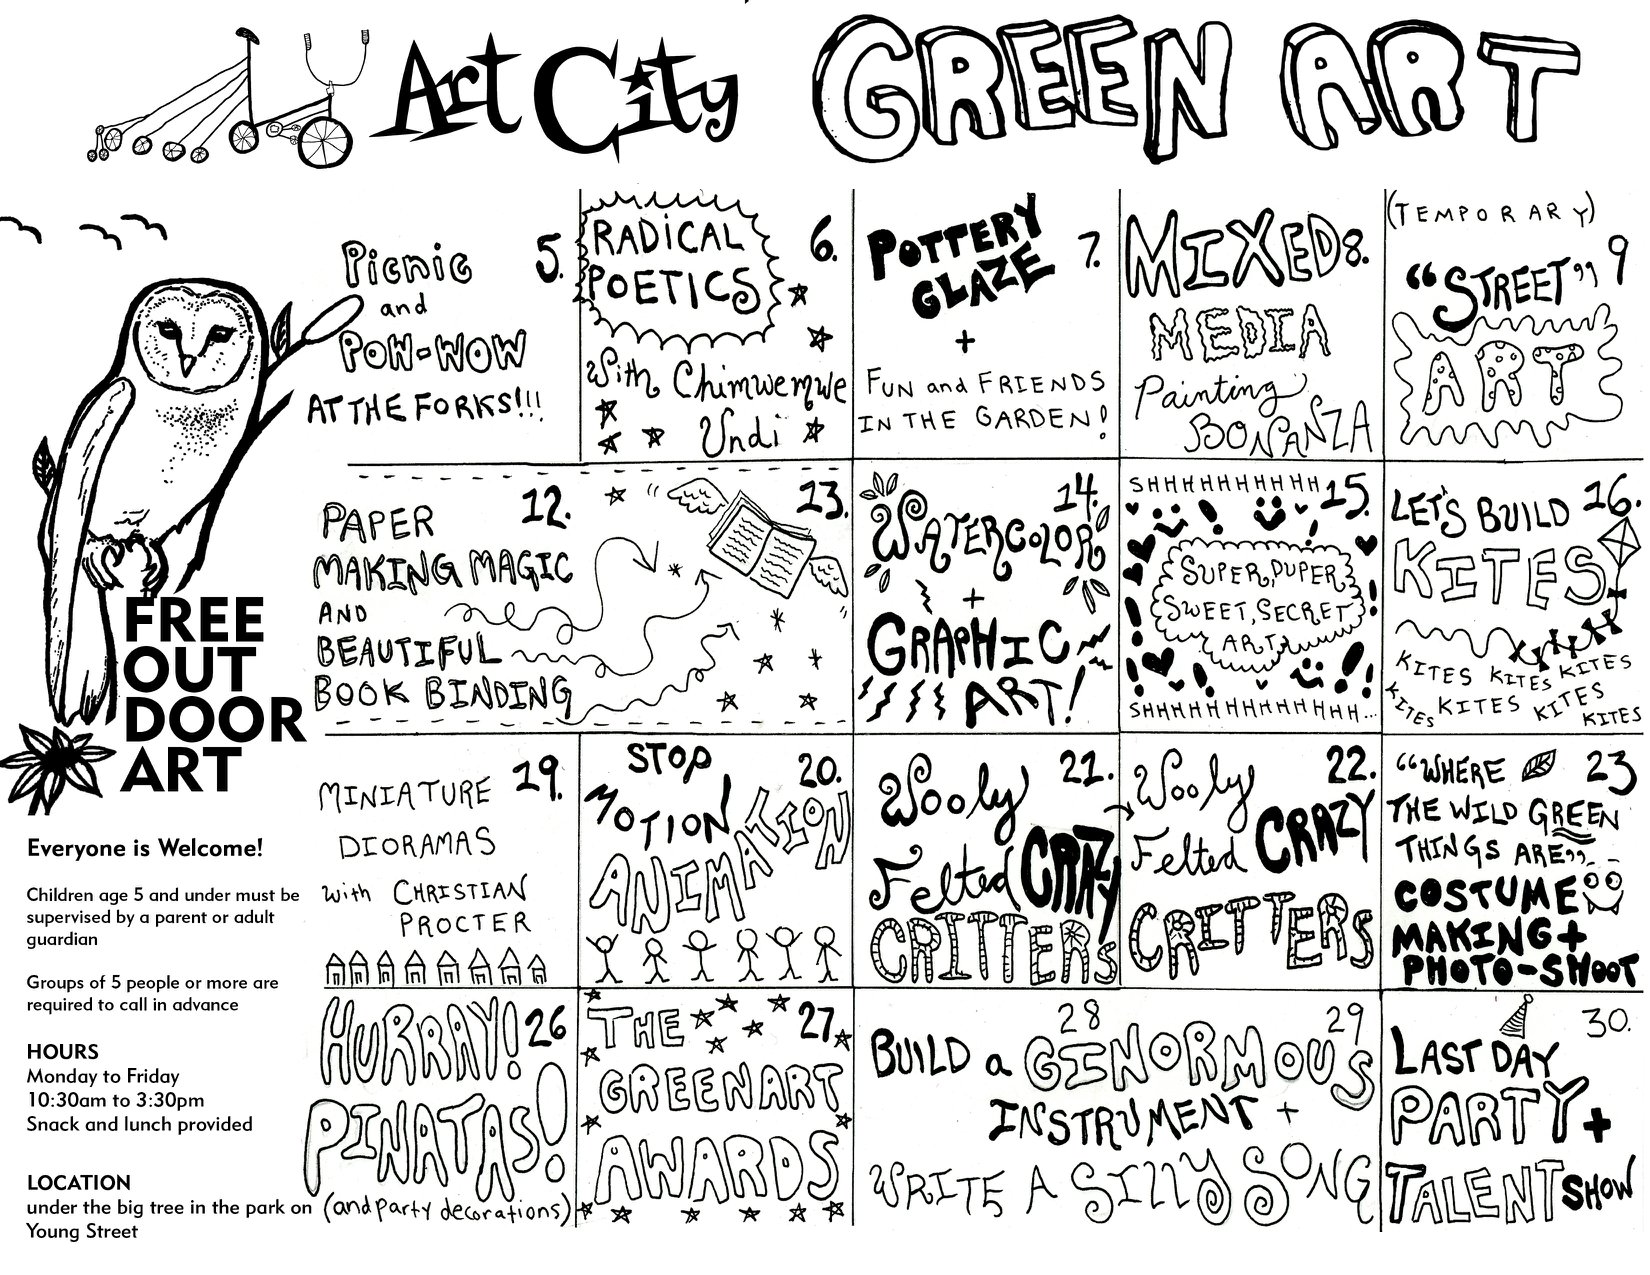 Art City GREEN ART
Picnic 5.
and
POW-WOW
AT THE FORKS!!!
RADICAL 6.
POETICS
With Chimwemwe
Undi
POTTERY 7.
GLAZE
+
FUN and FRIENDS
IN THE GARDEN!
MIXED 8.
MEDIA
Painting
BONANZA
(TEMPORARY)
"STREET" 9
ART
PAPER 12. 13.
MAKING MAGIC
AND
BEAUTIFUL
BOOK BINDING
14.
WATERCOLOR
+
GRAPHIC
ART!
SHHHHHHHHHH 15.
SUPER, DUPER
SWEET, SECRET
ART
SHHHHHHHHHHHHH...
LET'S BUILD 16.
KITES
KITES KITES KITES
KITES KITES KITES KITES
MINIATURE 19.
DIORAMAS
with CHRISTIAN
PROCTER
STOP 20.
MOTION
ANIMATION
Wooly 21.
Felted CRAZY
CRITTERS
Wooly 22.
Felted CRAZY
CRITTERS
"WHERE 23
THE WILD GREEN
THINGS ARE"
COSTUME
MAKING +
PHOTO-SHOOT
HURRAY! 26
PINATAS!
(and party decorations)
THE 27.
GREENART
AWARDS
28 29
BUILD a GINORMOUS
INSTRUMENT +
WRITE A SILLY SONG
30.
LAST DAY
PARTY +
TALENT SHOW
FREE
OUT
DOOR
ART
Everyone is Welcome!
Children age 5 and under must be
supervised by a parent or adult
guardian
Groups of 5 people or more are
required to call in advance
HOURS
Monday to Friday
10:30am to 3:30pm
Snack and lunch provided
LOCATION
under the big tree in the park on
Young Street